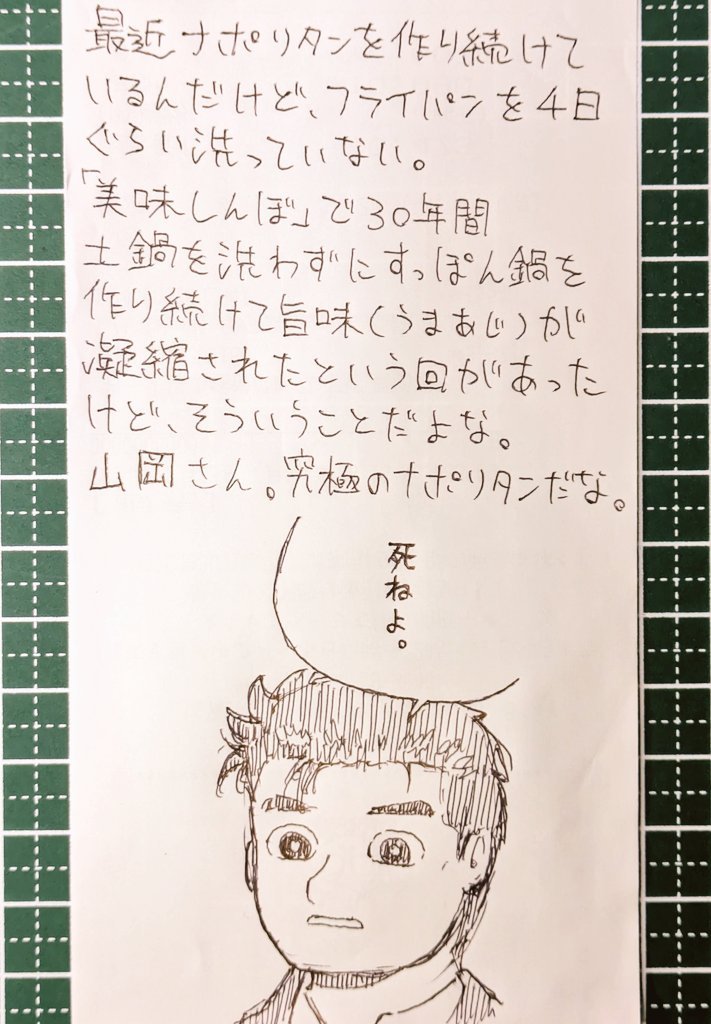 最近ナポリタンを作り続けて
いるんだけど、フライパンを4日
ぐらい洗っていない。
「美味しんぼ」で30年間
土鍋を洗わずにすっぽん鍋を
作り続けて旨味(うまあじ)が
凝縮されたという回があった
けど、そういうことだよな。
山岡さん。究極のナポリタンだな。
死ねよ。